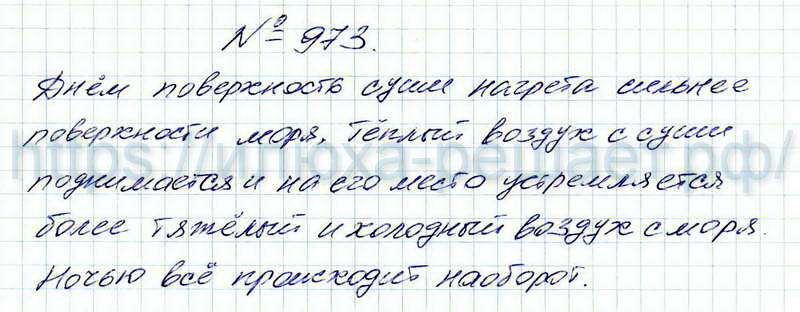 № 973.
Днём поверхность суши нагрета сильнее
поверхности моря, тёплый воздух с суши
https://илюха-решает.рф/
поднимается и на его место устремляется
более тяжёлый и холодный воздух с моря.
Ночью всё происходит наоборот.